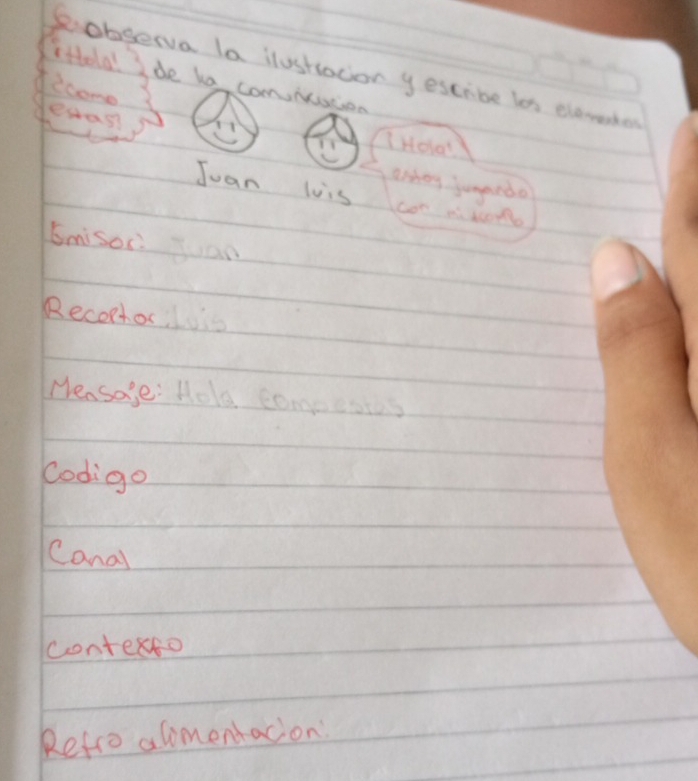 observa la ilustracion y escribe los elementos
de la comunicacion
¡Hola!
¿como
estas?
Juan
luis
¡Hola!
estoy jugando
con mi
Emisor: Juan
Receptor luis
Mensaje: Hola como estas
Codigo
Canal
contexto
Retro alimentacion: